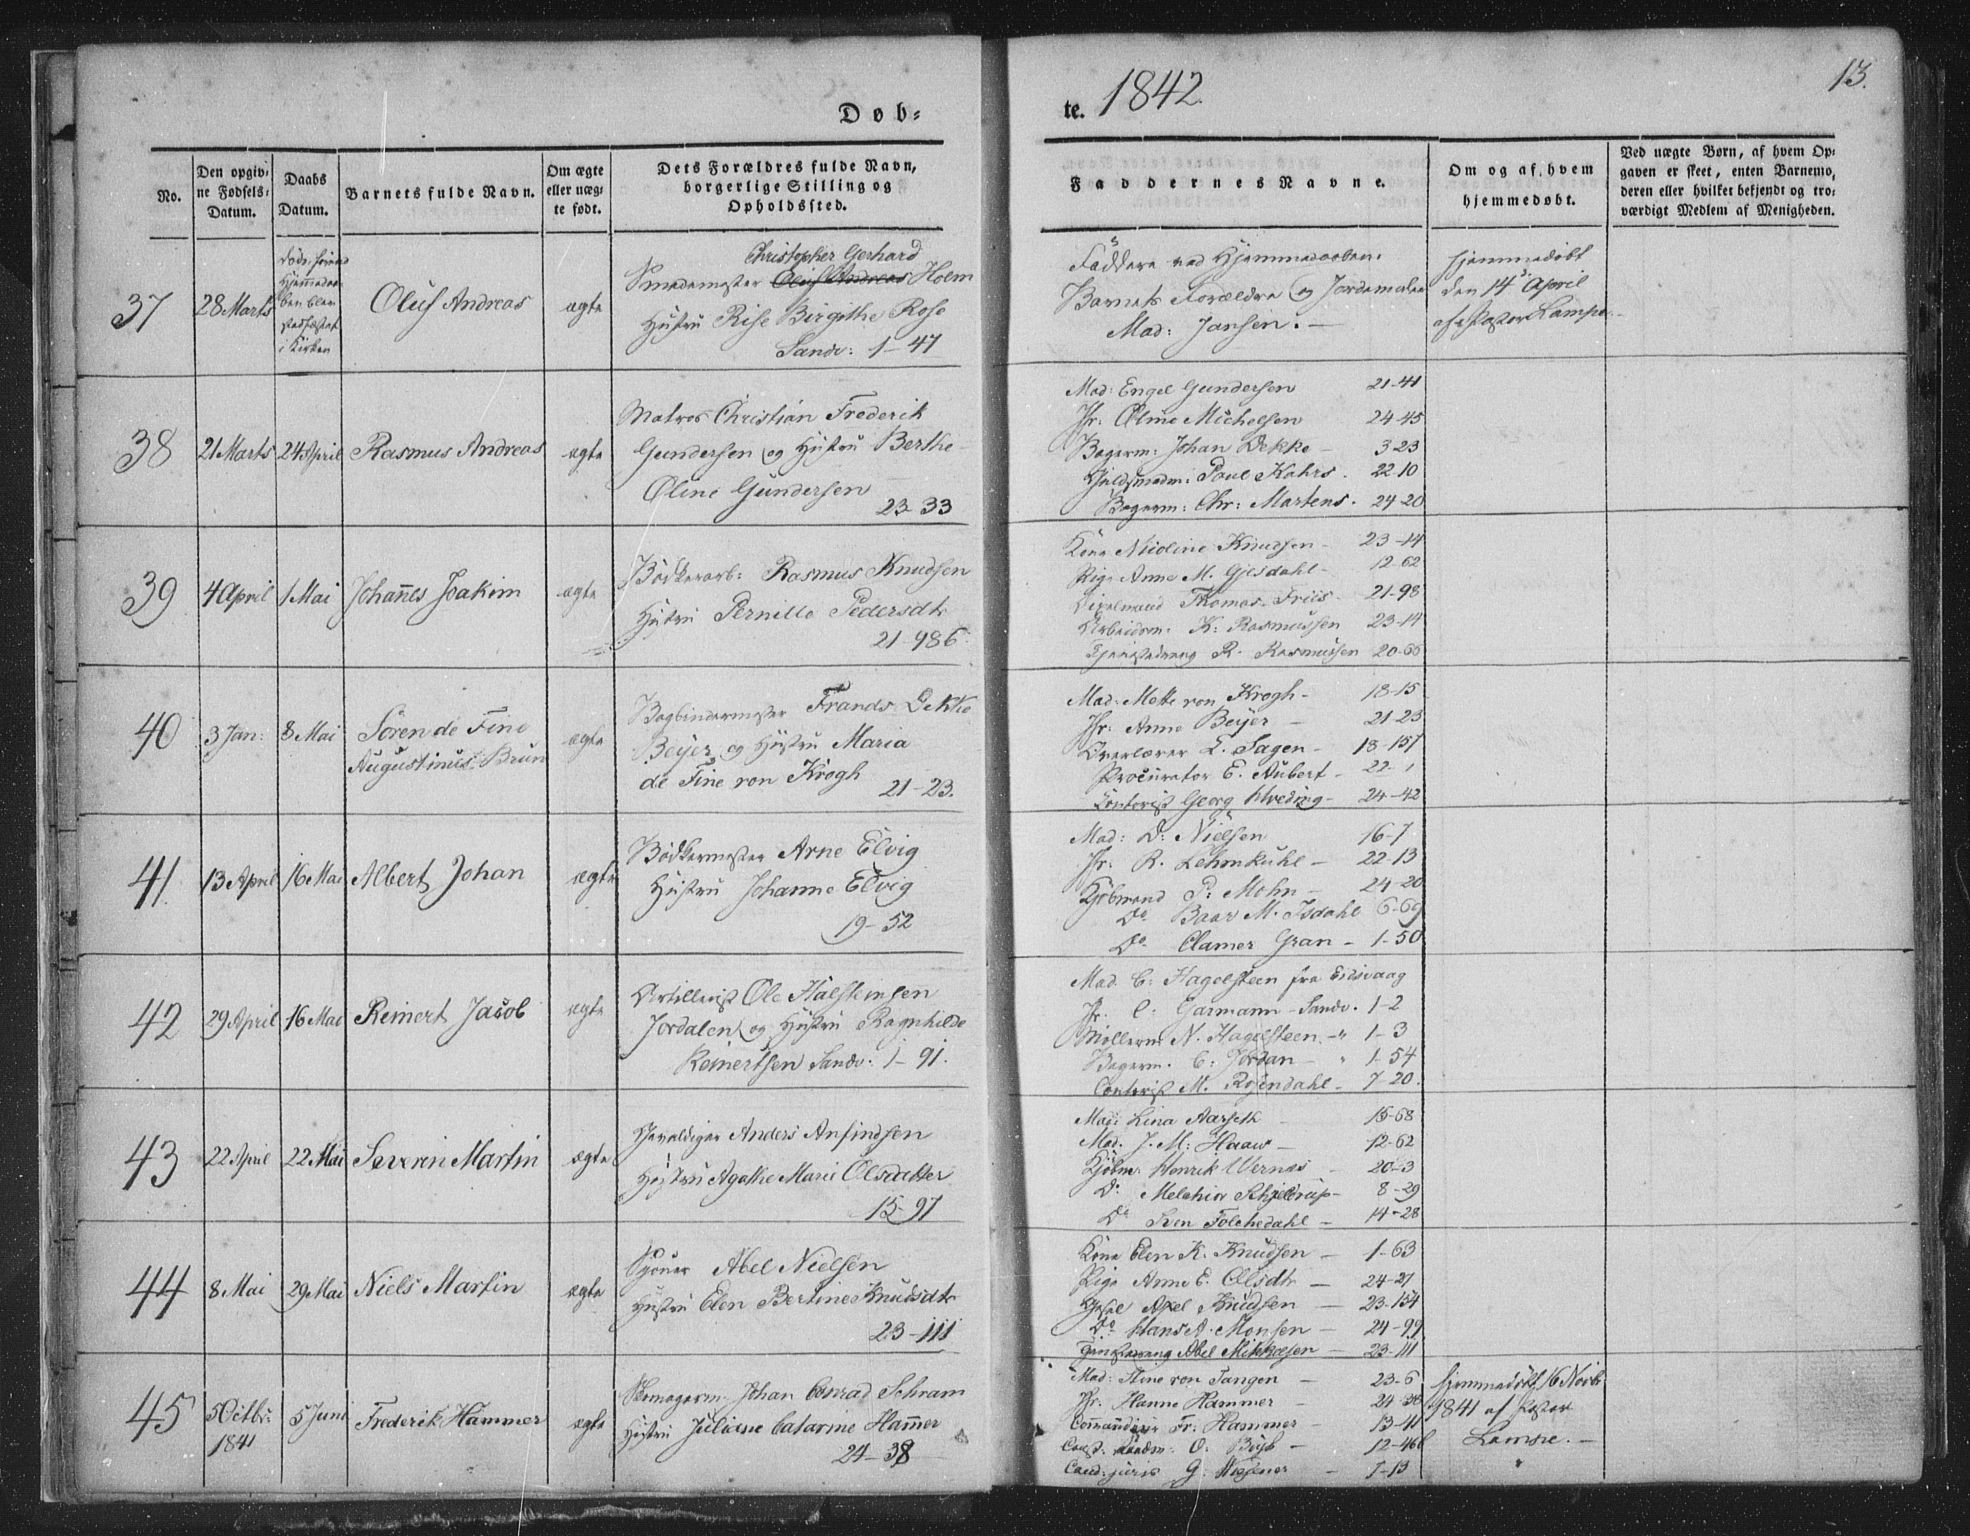 Døb=
te. 1842.
13.
No.
Den opgiv=
ne Fødsels=
Datum.
Daabs
Datum.
Barnets fulde Navn.
Om ægte
eller uæg=
te født.
Dets Forældres fulde Navn,
borgerlige Stilling og
Opholdssted.
Faddernes Navne.
Om og af hvem
hjemmedøbt.
Ved uægte Børn, af hvem Op=
gaven er skeet, enten Barnemo,
deren eller hvilket bekjendt og tro=
værdigt Medlem af Menigheden.
37
28 Marts
i Kirken
Oluf Andreas
ægte
Christopher Gerhard
Smedemester Oluf Andreas Holm
Hustru Rise Birgithe Rose
Sandv: 1-47
Faddere ved Hjemmedaaben:
Barnets Forældre og Jordemoder
Mad: Jansen. —
Hjemmedøbt
den 14 April
af Pastor Lampe
38
21 Marts
24 April
Rasmus Andreas
ægte
Matros Christian Frederik
Gundersen og Hustru Berthe
Oline Gundersen
23-33
Mad: Engel Gundersen 21-41
Jfr: Oline Michelsen 24-45
Bagerm: Johan Dekke - 3-23
Guldsmedm: Poul Kahrs. 22-10
Bagerm: Chr: Martens. 24-20
39
4 April
1 Mai
Johañes Joakim
ægte
Bødkerarb: Rasmus Knudsen
Hustru Pernille Pedersdtr
21-986
Kone Nicoline Knudsen - 23-14
Pige Anne M. Gjesdahl - 12-62
Thomas Friis - 21-98
Arbeidsm: K: Rasmussen 23-14
Tjenestedreng R. Rasmussen 20-66
40
3 Jan:
8 Mai
Søren de Fine
Augustinus Brun
ægte
Bogbindermester Frands Dekke
Beyer og Hustru Maria
de Fine von Krogh 21-23.
Mad: Mette von Krogh - 18-15
Jfr: Anne Beyer - 21-23
Overlærer L. Sagen - 18-157
Procurator E. Aubert - 22-1
Contorist Georg Hveding - 24-42
41
13 April
16 Mai
Albert Johan
ægte
Bødkermester Arne Elvig
Hustru Johanne Elvig
19-52
Mad: D: Nielsen 16-7
Jfr: R. Lehmkuhl - 22-13
Kjøbmand P: Mohn - 24-20
Do Baar M. Isdahl 6-69
Do Clamer Gran - 1-50
42
29 April
16 Mai
Reinert Jacob
ægte
Artillerist Ole Halsteinsen
Jordalen og Hustru Ragnhilde
Reinertsen Sandv: 1-91.
Mad. C: Hagelsteen fra Eidsvaag
Jfr. C: Garmann - Sandv. 1-2
Møllerm N. Hagelsteen - " 1-3
Bagerm. C: Jordan - " 1-54
Contorist M. Rosendahl - 7-20.
43
22 April
22 Mai
Severin Martin
ægte
Gevaldiger Anders Anfindsen
Hustru Agathe Marie Olsdatter
15-97
Mad: Lina Aarseth 15-68
Mad. J. M: Haaw - 12-62
Kjøbm: Henrik Wernøs - 20-3
Do Melchior Schjelderup - 8-29
Do Sven Folchedahl - 14-28
44
8 Mai
29 Mai
Niels Martin
ægte
Abel Nielsen
Hustru Elen Bertine Knudsdtr
23-111
Kone Elen K. Knudsen - 1-63
Pige Anne E. Olsdtr - 24-27
Axel Knudsen - 23-154
Do Hans A. Monsen - 24-99
Tjenestedreng Abel Mikkelsen - 23-111
45
5 Octbr:
1841
5 Juni
Frederik Hammer
ægte
Johan Conrad Schram
Hustru Juliane Catarine Hañer
24-38
Mad: Stine von Tangen - 23-6
Jfr: Hanne Hammer - 24-38
Fr: Hammer - 13-11
12-46
Cand: juris G: Wesener - 7-13
Hjemmedøbt 16 Novbr
1841 af Pastor
Lampe. —